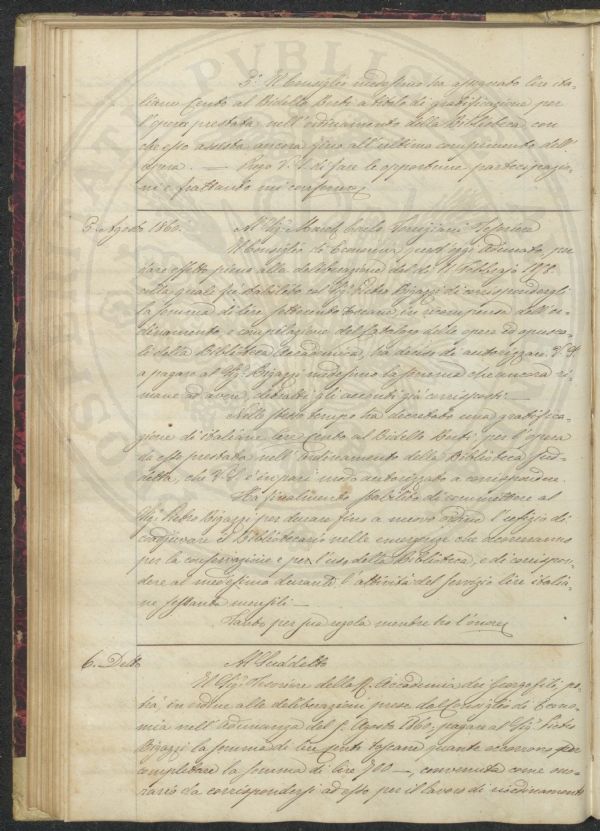 3°. Il Consiglio medesimo ha assegnato lire ita-
liane Cento al Bidello Berti a titolo di gratificazione per
l'opera prestata nell'ordinamento della Biblioteca con
che esso assista ancora fino all'ultimo compimento dell'
opera. — Prego V. S. di fare le opportune partecipazio-
ni e frattanto mi confermo
5. Agosto 1860. Al Sig. March. Carlo Torrigiani Tesoriere
Il Consiglio di Economia quest'oggi adunato, per
dare effetto pieno alla deliberazione del dì 11 Febbraio
colla quale fu stabilito col Sig. Pietro Bigazzi di corrispondergli
la somma di lire settecento toscane, in ricompensa dell'or-
dinamento e compilazione del Catalogo delle opere ed opusco-
li della Biblioteca Accademica, ha deciso di autorizzare V. S.
a pagare al Sig. Bigazzi medesimo la somma che ancora ri-
mane ad avere, detratti gli acconti già corrisposti. —
Nello stesso tempo ha decretato una gratifica-
zione di italiane lire Cento al Bidello Berti, per l'opera
da esso prestata nell'ordinamento della Biblioteca sud-
detta, che V. S. è in pari modo autorizzato a corrispondere.
Ha finalmente stabilito di commettere al
Sig. Pietro Bigazzi per durare fino a nuovo ordine l'ufizio di
coadiuvare il Bibliotecario nelle emergenze che occorreranno
per la conservazione e per l'uso della Biblioteca, e di corrispon-
dere al medesimo durante l'attività del servizio lire italia-
ne sessanta mensili —
Tanto per sua regola mentre ho l'onore
6. Detto Al Suddetto
Il Sig. Tesoriere della R. Accademia dei Georgofili, po-
trà, in ordine alle deliberazioni prese dal Consiglio di Econo-
mia nell'adunanza del 5. Agosto 1860, pagare al Sig. Pietro
Bigazzi la somma di lire cento toscane quante occorrono per
completare la somma di lire 700 —, convenuta come ono-
rario da corrispondersi ad esso per il lavoro di riordinamento